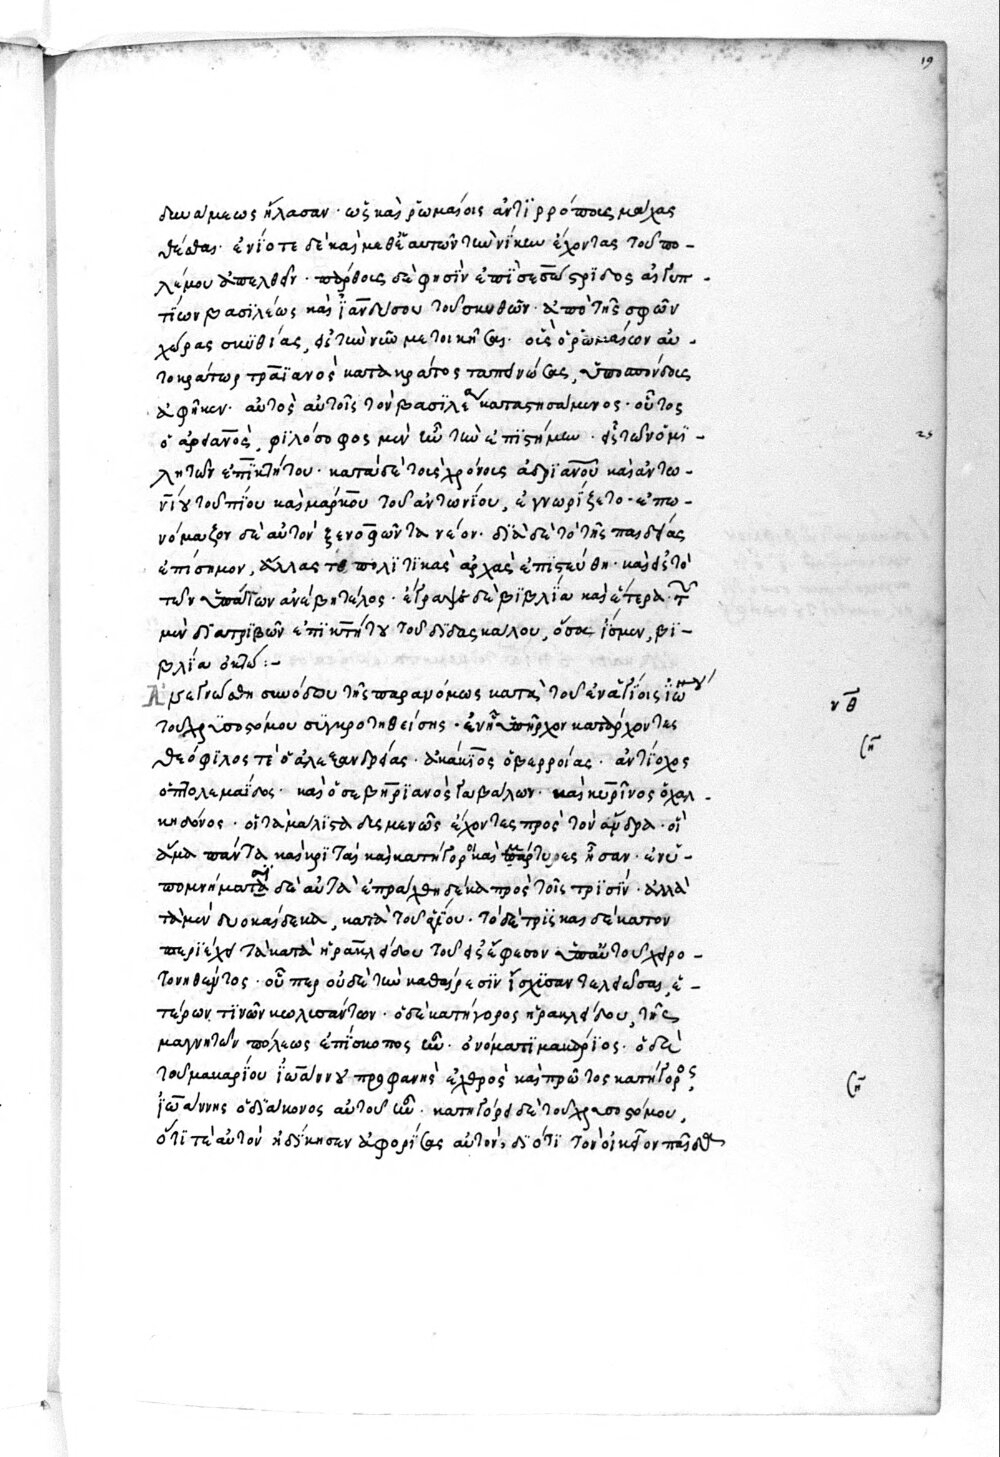 19
δυνάμεως ἤλασαν· ὡς καὶ ῥωμαίοις ἀντιρρόπους μάχας
θέσθαι· ἐνίοτε δὲ καὶ μεθ' ἑαυτῶν τὴν νίκην ἔχοντας τοῦ πο-
λέμου ἀπελθεῖν· πάρθους δέ φησιν ἐπὶ σεσώστριδος αἰγυπ-
τίων βασιλέως καὶ ἰανδύσου τοῦ σκυθῶν· ἀπὸ τῆς σφῶν
χώρας σκυθίας, εἰς τὴν νῦν μετοικῆσαι· οὓς ὁ ῥωμαίων αὐ-
τοκράτωρ τραϊανὸς κατὰ κράτος ταπεινώσας, ὑποσπόνδους
ἀφῆκεν· αὐτὸς αὐτοῖς τὸν βασιλέα καταστησάμενος· οὗτος
ὁ ἀρειανὸς, φιλόσοφος μὲν ἦν τὴν ἐπιστήμην· εἷς τῶν ὁμι-
25
λητῶν ἐπικτήτου· κατὰ δὲ τοὺς χρόνους ἀδριανοῦ καὶ ἀντω-
νίου τοῦ πίου καὶ μάρκου τοῦ ἀντωνίου, ἐγνωρίζετο· ἐπω-
νόμαζον δὲ αὐτὸν ξενοφῶντα νέον· διὰ δὲ τὸ τῆς παιδείας
ἐπίσημον, ἄλλας τε πολιτικὰς ἀρχὰς ἐπιστεύθη· καὶ εἰς τὸ
τῶν ὑπάτων ἀνέβη τέλος· ἔγραψε δὲ βιβλία καὶ ἕτερα· τῶν
μὲν διατριβῶν ἐπικτήτου τοῦ διδασκάλου, ὅσα ἴσμεν, βι-
βλία ὀκτώ:-
Ἀνεγνώσθη συνόδου τῆς παρανόμως κατὰ τοῦ ἐν ἁγίοις ἰωάννου
νθ
τοῦ χρυσοστόμου συγκροτηθείσης· ἐν ᾗ ὑπῆρχον κατάρχοντες
θεόφιλός τε ὁ ἀλεξανδρείας· ἀκάκιος ὁ βερροίας· ἀντίοχος
ὁ πτολεμαΐδος· καὶ ὁ σεβηριανὸς γαβάλων· καὶ κυρῖνος ὁ χαλ-
κηδόνος· οἳ τὰ μάλιστα δυσμενῶς ἔχοντες πρὸς τὸν ἄνδρα· οἳ
ἅμα πάντα καὶ κριταὶ καὶ κατήγοροι καὶ μάρτυρες ἦσαν· ἐν ὑ-
πομνήμασι δὲ αὐτὰ ἐπράχθη δέκα πρὸς τοῖς τρισίν· ἀλλὰ
τὰ μὲν δυοκαίδεκα, κατὰ τοῦ ἁγίου· τὸ δὲ τρισκαιδέκατον
περιέχει τὰ κατὰ ἡρακλείδου τοῦ εἰς ἔφεσον ὑπ' αὐτοῦ χειρο-
τονηθέντος· οὗπερ οὐδὲ τὴν καθαίρεσιν ἴσχυσαν τελειῶσαι, ἑ-
τέρων τινῶν κωλυσάντων· ὁ δὲ κατήγορος ἡρακλείδου, τῆς
μαγνητῶν πόλεως ἐπίσκοπος ἦν· ὀνόματι μακάριος· ὁ δὲ
τοῦ μακαρίου ἰωάννου προφανὴς ἐχθρὸς καὶ πρῶτος κατήγορος,
ἰωάννης ὁ διάκονος αὐτοῦ ἦν· κατηγόρει δὲ τοῦ χρυσοστόμου,
ὅτι τε αὐτὸν ἠδίκησεν ἀφορίσας αὐτὸν, διότι τὸν οἰκεῖον παῖδα